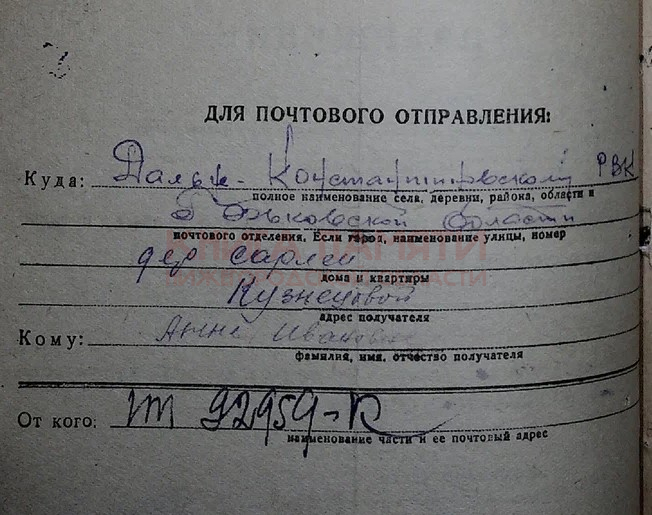 ДЛЯ ПОЧТОВОГО ОТПРАВЛЕНИЯ:
Куда: Дальне-Константиновскому РВК
полное наименование села, деревни, района, области и
Горьковской области
почтового отделения. Если город, наименование улицы, номер
КНИГА ПАМЯТИ
дер Сарлеи
дома и квартиры
НИЖЕГОРОДСКОЙ ОБЛАСТИ
Кузнецовой
адрес получателя
Кому: Анне Ивановне
фамилия, имя, отчество получателя
От кого: 92959-К
наименование части и ее почтовый адрес